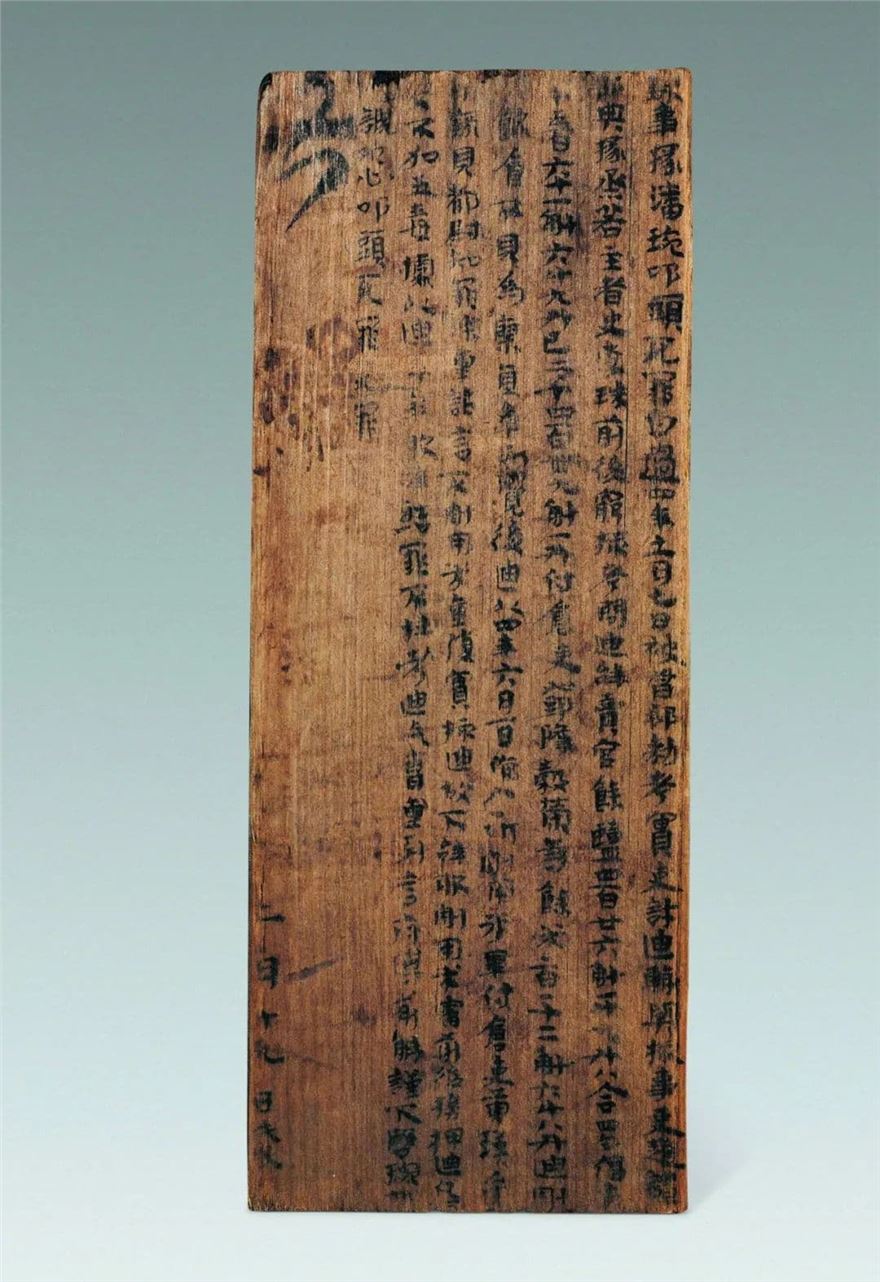 錄事掾潘琬叩頭死罪白過四年十一月七日被督郵勑考實吏許迪輒與核事吏趙譚
部典掾烝若主者史李珠前後窮核考問迪辭賣官餘鹽四百廿六斛一斗九升八合四勺偪米
二千五百六十一斛六斗九升已二千四百卌九斛一升付倉吏鄧隆穀榮等餘米一百一十二斛六斗八升迪割
用飲食不見為廖直事所覺後迪以四年六月一日偷入所割用米畢付倉吏黃瑛受
前錄見都尉知罪深重詐言不割用米重復實核迪故下辭服割用米審前後搒押迪凡
下不加五毒據以迪今年服辭結罪不枉考迪乞曹重列言府傅前解謹下啟琬誠
惶誠恐叩頭死罪死罪
若
二月十九日戊戌白